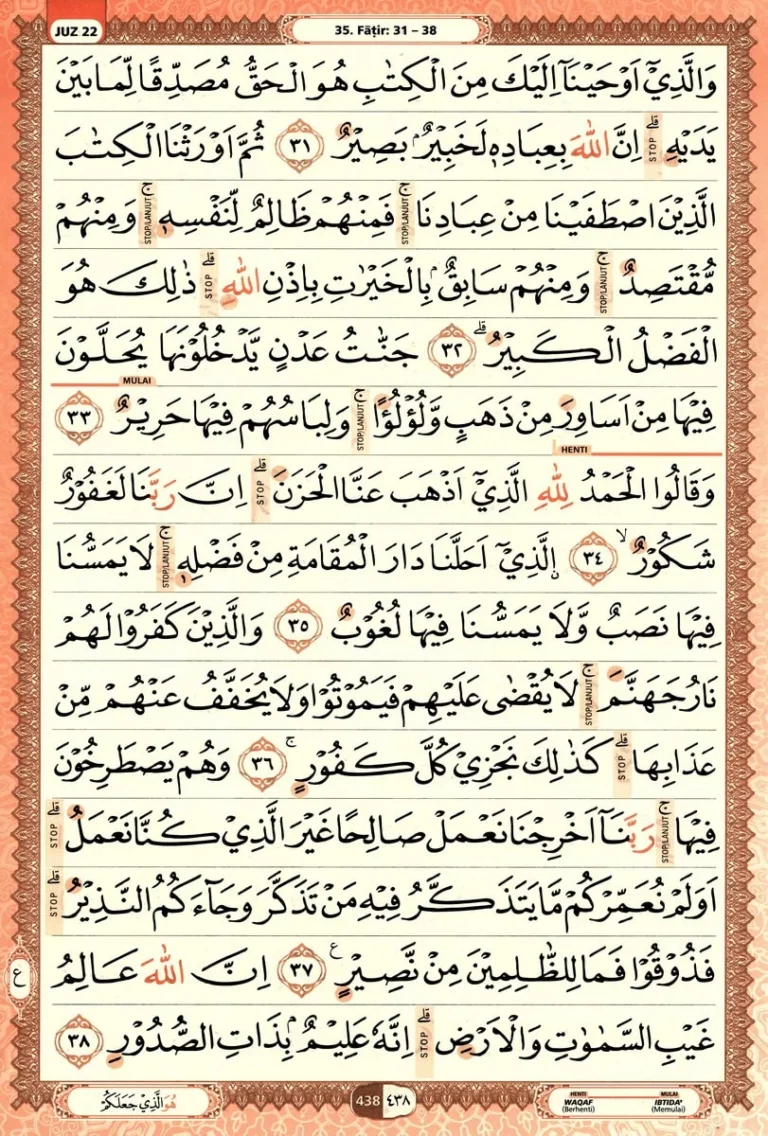 JUZ 22
35. Fāṭir: 31 – 38
وَالَّذِيْٓ اَوْحَيْنَآ اِلَيْكَ مِنَ الْكِتٰبِ هُوَ الْحَقُّ مُصَدِّقًا لِّمَا بَيْنَ
يَدَيْهِۗ STOP اِنَّ اللّٰهَ بِعِبَادِهٖ لَخَبِيْرٌۢ بَصِيْرٌ ٣١ ثُمَّ اَوْرَثْنَا الْكِتٰبَ
الَّذِيْنَ اصْطَفَيْنَا مِنْ عِبَادِنَاۚ STOP/LANJUT فَمِنْهُمْ ظَالِمٌ لِّنَفْسِهٖۚ STOP/LANJUT وَمِنْهُمْ
مُّقْتَصِدٌۚ STOP/LANJUT وَمِنْهُمْ سَابِقٌۢ بِالْخَيْرٰتِ بِاِذْنِ اللّٰهِۗ STOP ذٰلِكَ هُوَ
الْفَضْلُ الْكَبِيْرُۗ ٣٢ جَنّٰتُ عَدْنٍ يَّدْخُلُوْنَهَا يُحَلَّوْنَ
MULAI
فِيْهَا مِنْ اَسَاوِرَ مِنْ ذَهَبٍ وَّلُؤْلُؤًاۚ STOP/LANJUT وَلِبَاسُهُمْ فِيْهَا حَرِيْرٌ ٣٣
HENTI
وَقَالُوا الْحَمْدُ لِلّٰهِ الَّذِيْٓ اَذْهَبَ عَنَّا الْحَزَنَۗ STOP اِنَّ رَبَّنَا لَغَفُوْرٌ
شَكُوْرٌۙ ٣٤ ۨالَّذِيْٓ اَحَلَّنَا دَارَ الْمُقَامَةِ مِنْ فَضْلِهٖۚ STOP/LANJUT لَا يَمَسُّنَا
فِيْهَا نَصَبٌ وَّلَا يَمَسُّنَا فِيْهَا لُغُوْبٌ ٣٥ وَالَّذِيْنَ كَفَرُوْا لَهُمْ
نَارُ جَهَنَّمَۚ STOP/LANJUT لَا يُقْضٰى عَلَيْهِمْ فَيَمُوْتُوْا وَلَا يُخَفَّفُ عَنْهُمْ مِّنْ
عَذَابِهَاۗ STOP كَذٰلِكَ نَجْزِيْ كُلَّ كَفُوْرٍۚ ٣٦ وَهُمْ يَصْطَرِخُوْنَ
فِيْهَاۚ STOP/LANJUT رَبَّنَآ اَخْرِجْنَا نَعْمَلْ صَالِحًا غَيْرَ الَّذِيْ كُنَّا نَعْمَلُۗ STOP
اَوَلَمْ نُعَمِّرْكُمْ مَّا يَتَذَكَّرُ فِيْهِ مَنْ تَذَكَّرَ وَجَاۤءَكُمُ النَّذِيْرُۗ STOP
فَذُوْقُوْا فَمَا لِلظّٰلِمِيْنَ مِنْ نَّصِيْرٍ ࣖ ٣٧ اِنَّ اللّٰهَ عَالِمُ
ع
غَيْبِ السَّمٰوٰتِ وَالْاَرْضِۗ STOP اِنَّهٗ عَلِيْمٌۢ بِذَاتِ الصُّدُوْرِ ٣٨
هُوَ الَّذِيْ جَعَلَكُمْ
438 ٤٣٨
HENTI
WAQAF
(Berhenti)
MULAI
IBTIDA'
(Memulai)